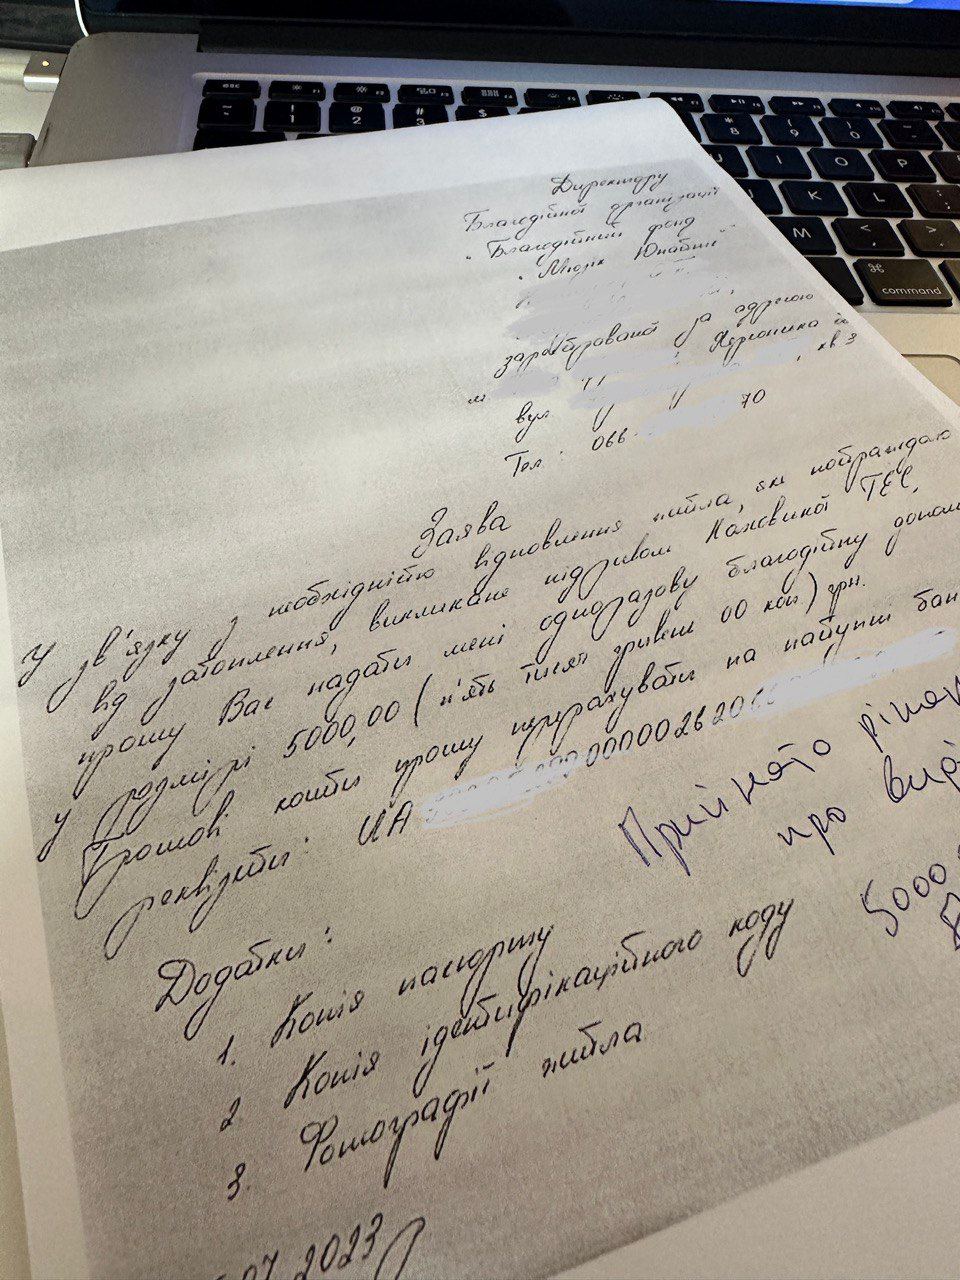 Директору
Благодійної організації
"Благодійний фонд
"Мюрк Юнайтій"
зареєстрованої за адресою
м
вул. кв 3
Тел.: 066 70
Заява
У зв'язку з необхідністю відновлення житла, яке постраждало
від затоплення, викликане підривом Каховської ГЕС,
прошу Вас надати мені одноразову благодійну допом
у розмірі 5000,00 (п'ять тисяч гривень 00 коп) грн.
Грошові кошти прошу перерахувати на наступні бан
реквізити: UA 0000026206
Прийнято рішен
про виді
5000
Додатки:
1. Копія паспорту
2. Копія ідентифікаційного коду
3. Фотографії житла
07.2023